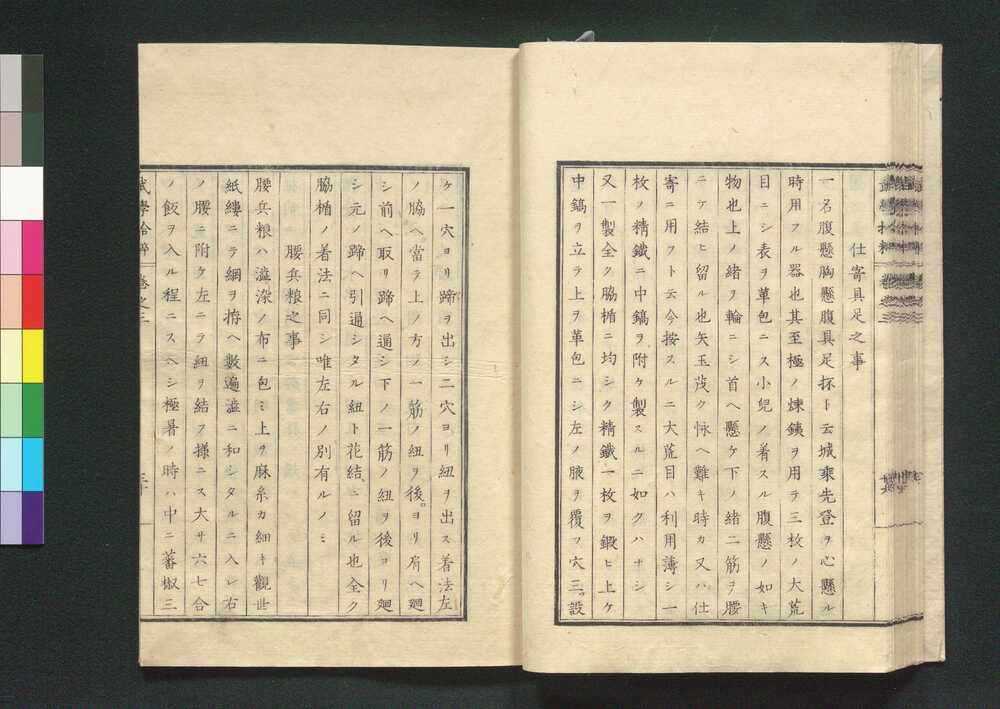 仕寄具足之事
一名腹懸胸懸腹具足抔ト云城乘先登ヲ心懸ル
時用フル器也其至極ノ煉銕ヲ用テ三枚ノ大荒
目ニシ表ヲ革包ニス小兒ノ着スル腹懸ノ如キ
物也上ノ緒ヲ輪ニシ首ヘ懸ケ下ノ緒二筋ヲ腰
ニテ結ヒ留ル也矢玉茂ク怺ヘ難キ時カ又ハ仕
寄ニ用フト云今按スルニ大荒目ハ利用薄シ一
枚ノ精鐵ニ中鎬ヲ附ケ製スルニ如クハナシ
又一製全ク脇楯ニ均シク精鐵一枚ヲ鍜ヒ上ケ
中鎬ヲ立テ上ヲ革包ニシ左ノ腋ヲ覆フ穴三設
ケ一穴ヨリ蹄ヲ出シ二穴ヨリ紐ヲ出ス着法左
ノ脇ヘ當テ上ノ方ノ一筋ノ紐ヲ後ヨリ肩ヘ廻
シ前ヘ取リ蹄ヘ通シ下ノ一筋ノ紐ヲ後ヨリ廻
シ元ノ蹄ヘ引通シタル紐ト花結ニ留ル也全ク
脇楯ノ着法ニ同シ唯左右ノ別有ルノミ
腰兵粮之事
腰兵粮ハ澁染ノ布ニ包ミ上ヲ麻糸カ細キ觀世
紙縷ニテ綱ヲ拵ヘ數遍澁ニ和シタルニ入レ右
ノ腰ニ附ケ左ニテ紐ヲ結フ様ニス大サ六七合
ノ飯ヲ入ル程ニスヘシ極暑ノ時ハ中ニ蕃椒三
武學拾粹 卷之三